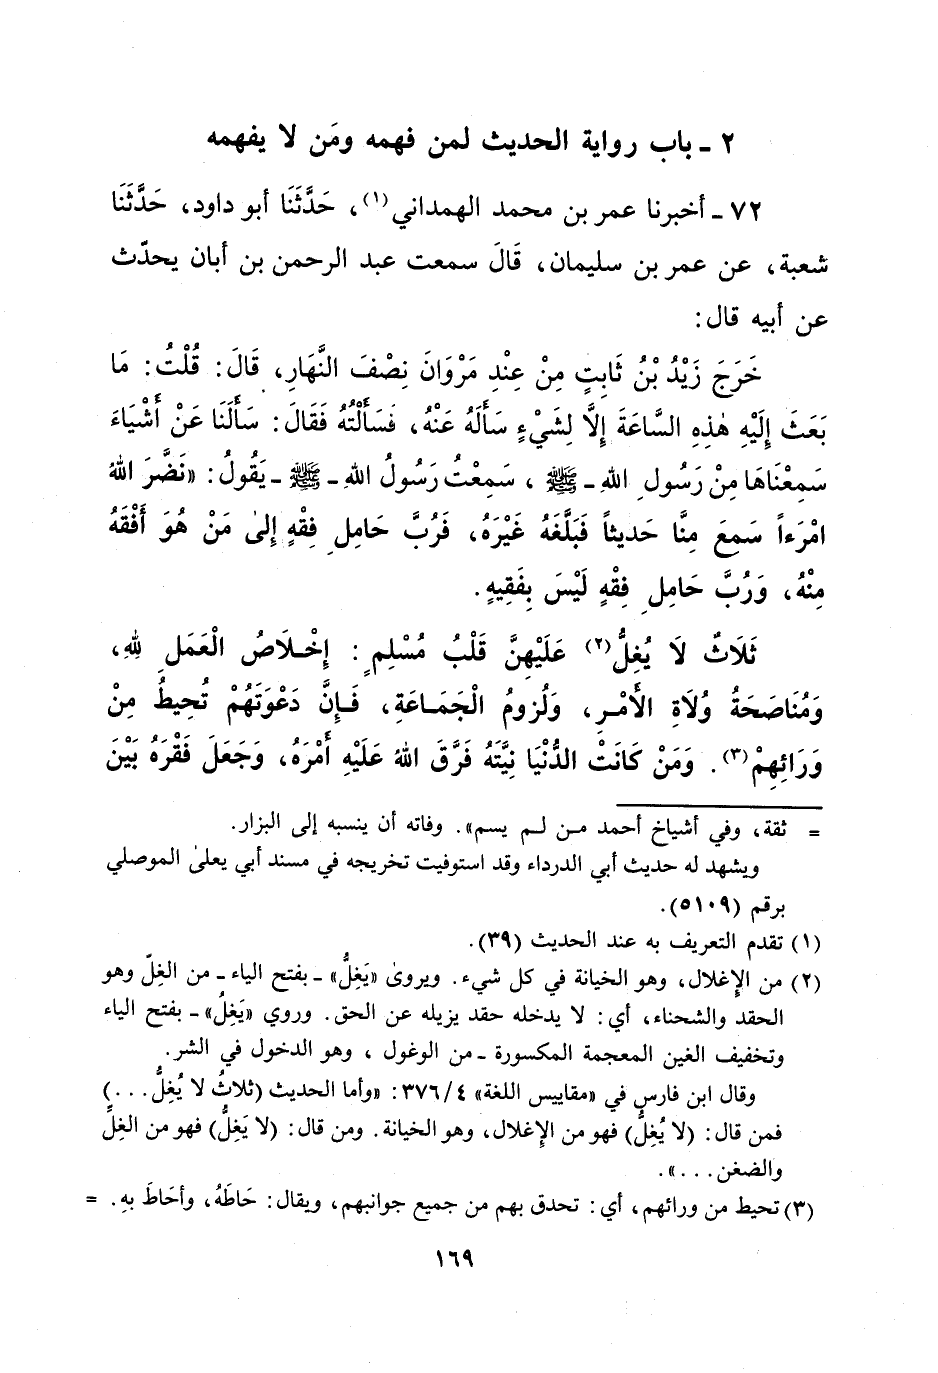 ٢ - باب رواية الحديث لمن فهمه ومَن لا يفهمه
٧٢ - أخبرنا عمر بن محمد الهمداني(١)، حَدَّثَنَا أبو داود، حَدَّثَنَا
شعبة، عن عمر بن سليمان، قَالَ سمعت عبد الرحمن بن أبان يحدّث
عن أبيه قال:
خَرَجَ زَيْدُ بْنُ ثَابِتٍ مِنْ عِنْدِ مَرْوَانَ نِصْفَ النَّهَارِ، قَالَ: قُلْتُ: مَا
بَعَثَ إِلَيْهِ هٰذِهِ السَّاعَةَ إِلَّا لِشَيْءٍ سَأَلَهُ عَنْهُ، فَسَأَلْتُهُ فَقَالَ: سَأَلَنَا عَنْ أَشْيَاءَ
سَمِعْنَاهَا مِنْ رَسُولِ اللهِ - ﷺ ، سَمِعْتُ رَسُولُ اللهِ - ﷺ - يَقُولُ: «نَضَّرَ اللهُ
امْرَءاً سَمِعَ مِنَّا حَديثاً فَبَلَّغَهُ غَيْرَهُ، فَرُبَّ حَامِلِ فِقْهٍ إِلىٰ مَنْ هُوَ أَفْقَهُ
مِنْهُ، وَرُبَّ حَامِلِ فِقْهٍ لَيْسَ بِفَقِيهٍ.
ثَلَاثٌ لَا يُغِلُّ(٢) عَلَيْهِنَّ قَلْبُ مُسْلِمٍ: إِخْلَاصُ الْعَمَلِ لِلهِ،
وَمُنَاصَحَةُ وُلَاةِ الأَمْرِ، وَلُزومُ الْجَمَاعَةِ، فَإِنَّ دَعْوَتَهُمْ تُحيطُ مِنْ
وَرَائِهِمْ(٣). وَمَنْ كَانَتْ الدُّنْيَا نِيَّتَهُ فَرَّقَ اللهُ عَلَيْهِ أَمْرَهُ، وَجَعَلَ فَقْرَهُ بَيْنَ
= ثقة، وفي أشياخ أحمد من لم يسم». وفاته أن ينسبه إلى البزار.
ويشهد له حديث أبي الدرداء وقد استوفيت تخريجه في مسند أبي يعلىٰ الموصلي
برقم (٥١٠٩).
(١) تقدم التعريف به عند الحديث (٣٩).
(٢) من الإغلال، وهو الخيانة في كل شيء. ويروىٰ «يَغِلُّ» - بفتح الياء - من الغِلّ وهو
الحقد والشحناء، أي: لا يدخله حقد يزيله عن الحق. وروي «يَغِلُ» - بفتح الياء
وتخفيف الغين المعجمة المكسورة - من الوغول ، وهو الدخول في الشر.
وقال ابن فارس في «مقاييس اللغة» ٣٧٦/٤: «وأما الحديث (ثلاثُ لا يُغِلُّ ...)
فمن قال: (لا يُغِلُّ) فهو من الإغلال، وهو الخيانة. ومن قال: (لا يَغِلُّ) فهو من الغِلِّ
والضغن ...».
(٣) تحيط من ورائهم، أي: تحدق بهم من جميع جوانبهم، ويقال: حَاطَهُ، وأحَاطَ بِهِ. =
١٦٩